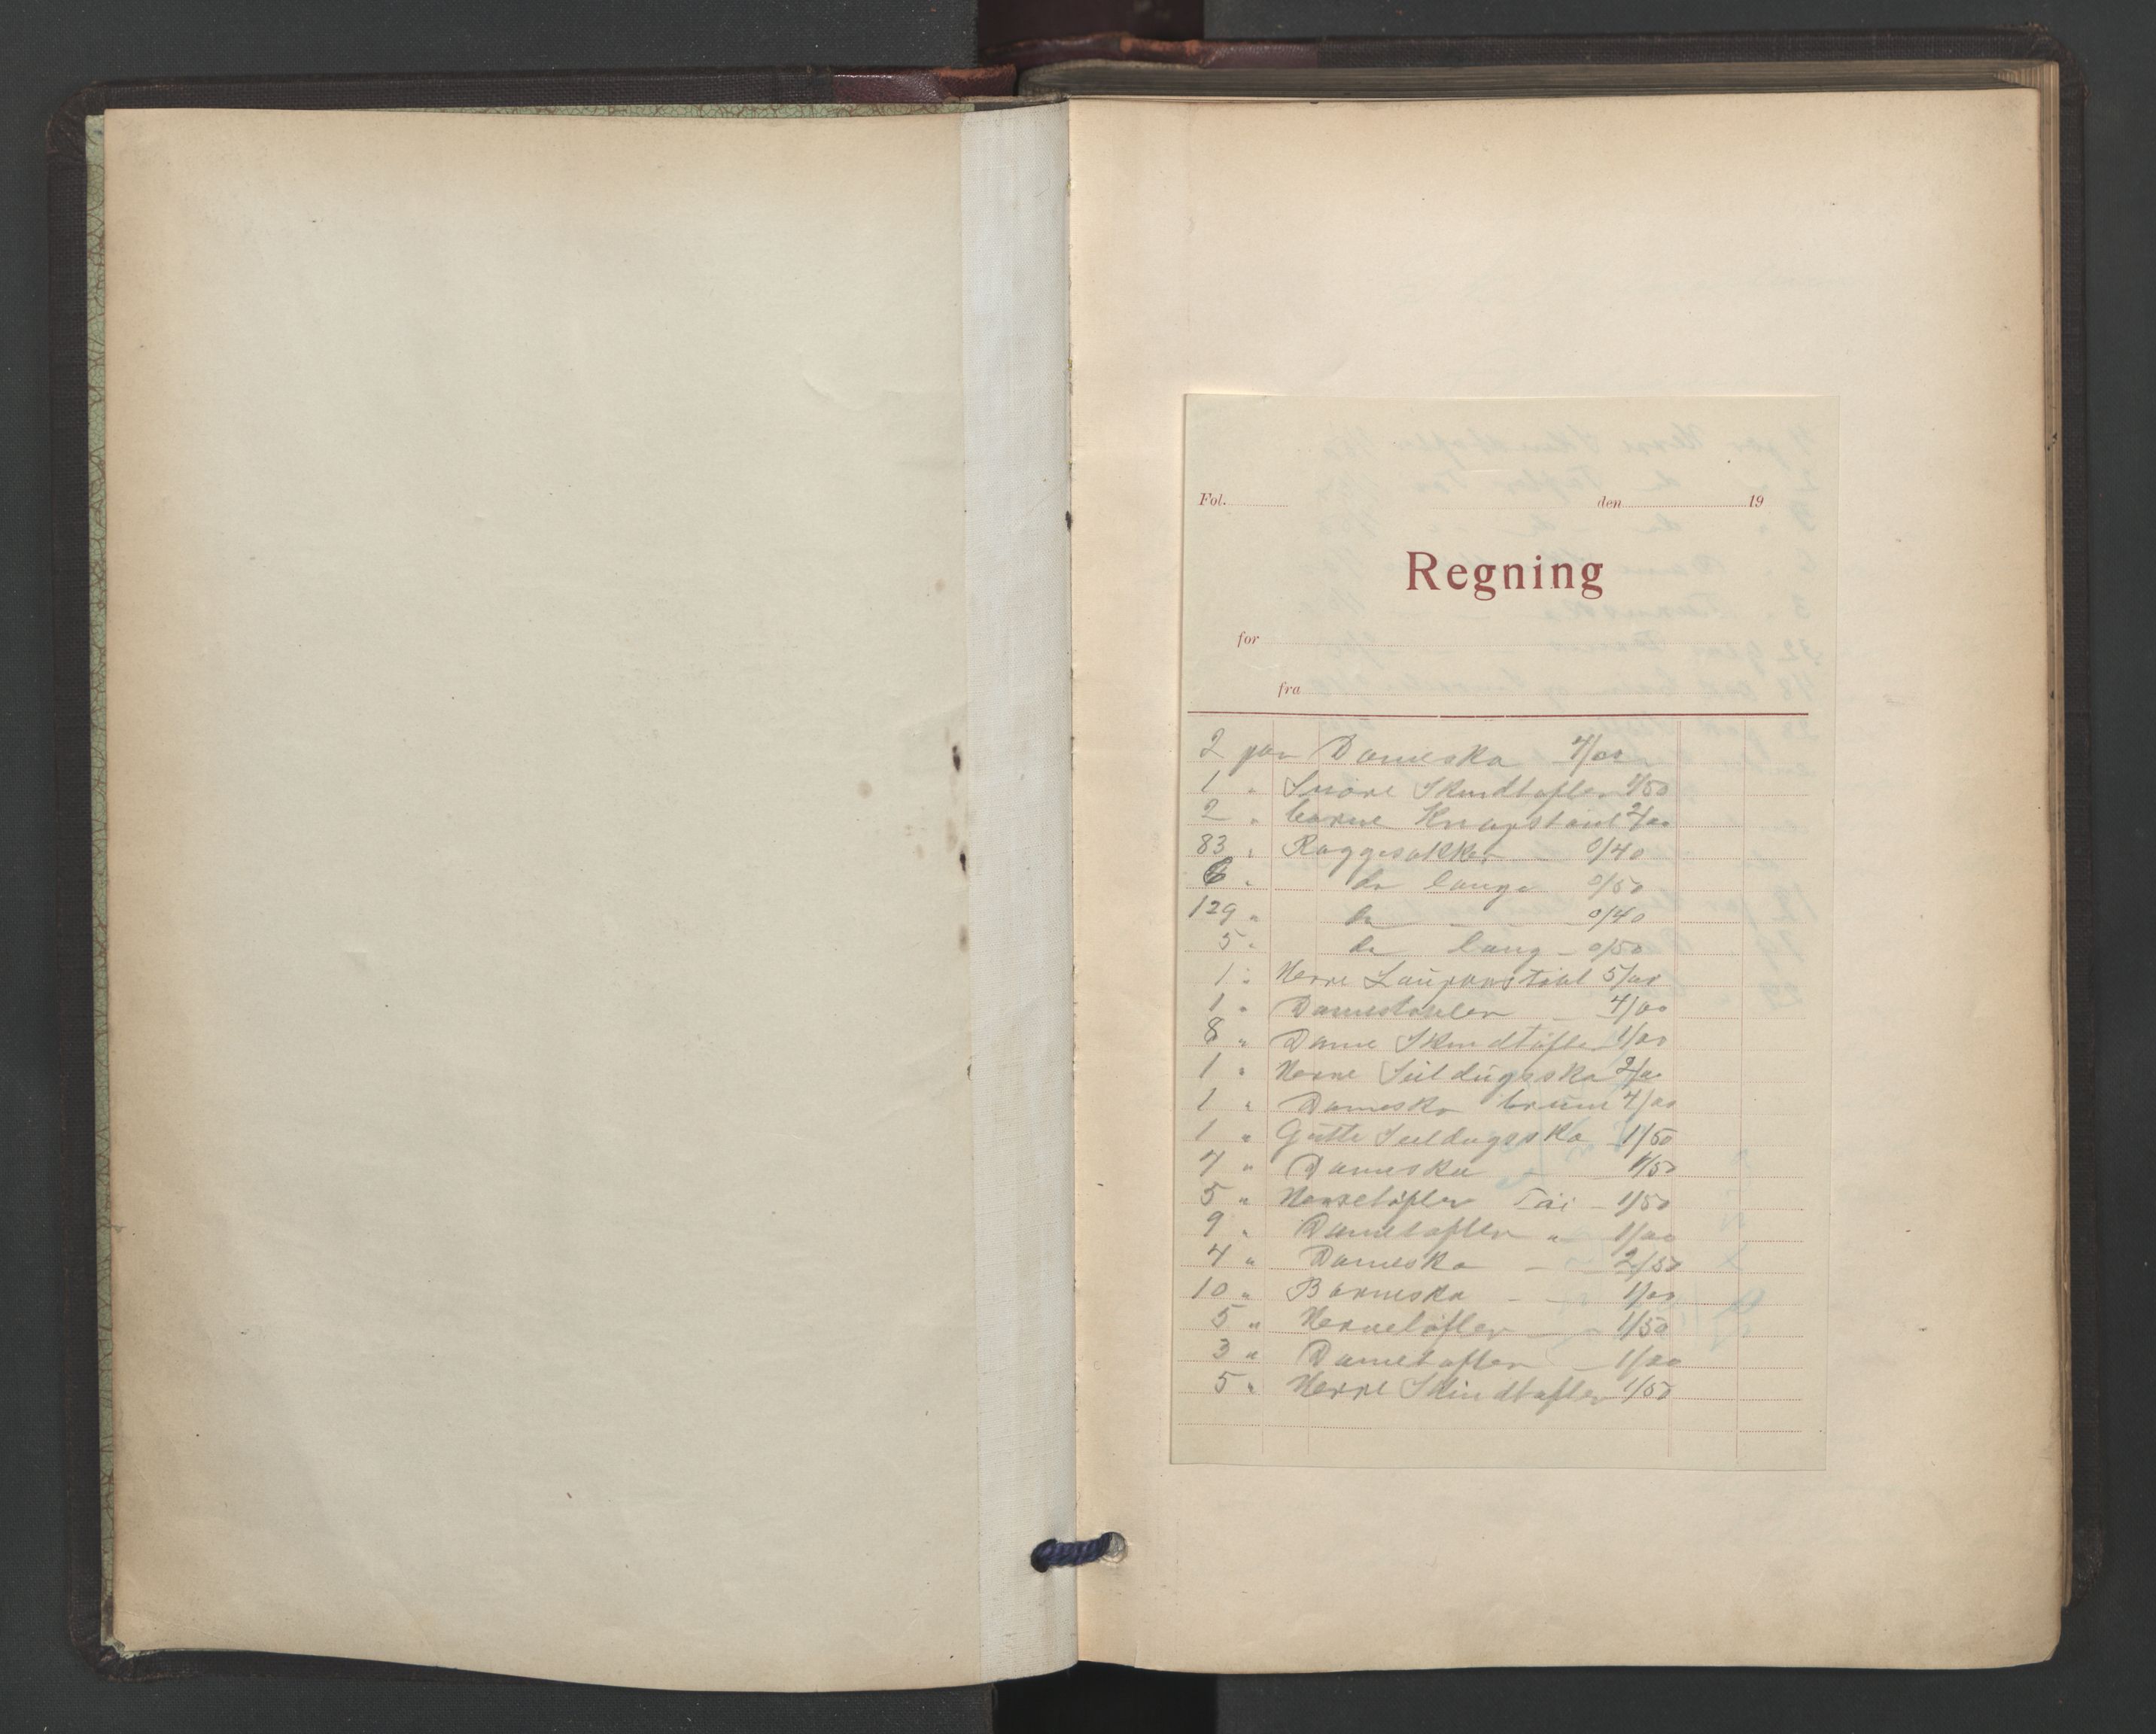 Fol. den 19
Regning
for
fra
2 par Damesko 4/00
1 " Snøre Skindtøfler 1/50
2 " barne Knapstøvl 2/00
83 " Raggesokker 0/40
6 " do lange 0/50
129 " do 0/40
5 " do lang - 0/50
1 " Herre 5/00
1 " Damestøvler 4/00
8 " Dame Skindtøfler 1/00
1 " Herre Seildugssko 2/00
1 " Damesko brun 4/00
1 " Gutte Seildugssko 1/50
7 " Damesko - 1/50
5 " Herretøfler Tøi - 1/50
9 " Dametøfler " 1/00
4 " Damesko - 2/50
10 " Barnesko - - 1/00
5 " Herretøfler - 1/50
3 " Dametøfler - 1/00
5 " Herre Skindtøfler 1/50